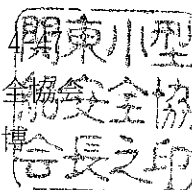 關東小型
全協会
安全協
博
会長之印